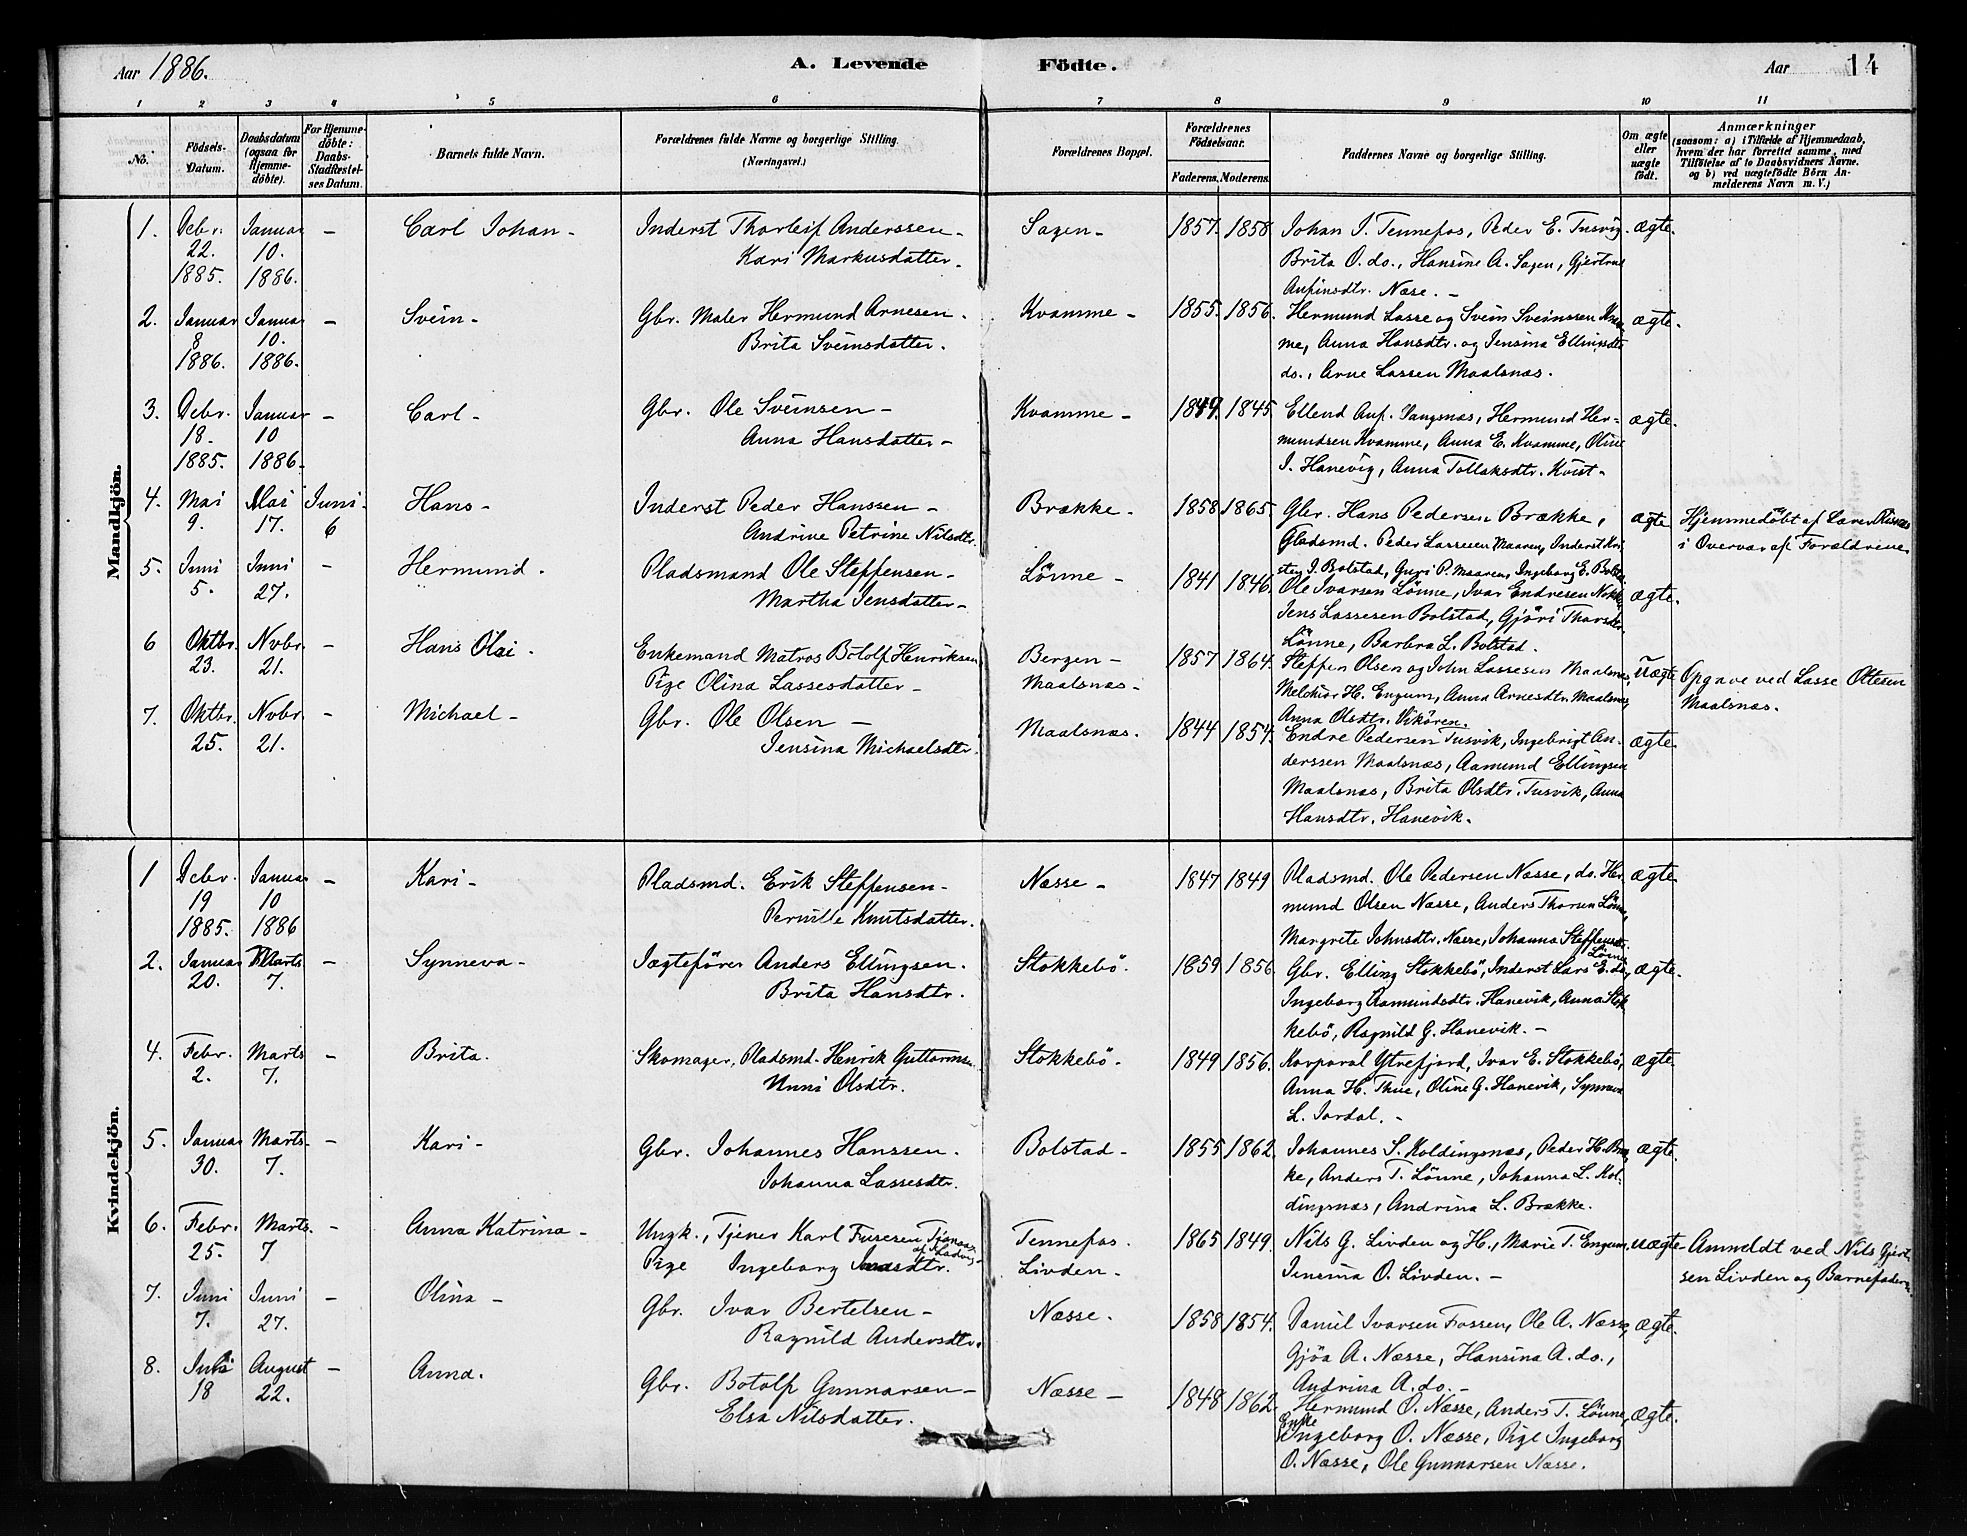 Aar 1886. A. Levende Födte. Aar 14
1 2 3 4 5 6 7 8 9 10 11
No. Födsels-Datum. Daabsdatum (ogsaa for Hjemme-döbte). For Hjemme-döbte: Daabs-Stadfæstel-ses Datum. Barnets fulde Navn. Forældrenes fulde Navne og borgerlige Stilling. (Næringsvei.) Forældrenes Bopæl. Forældrenes Födselsaar. Faderens. Moderens. Faddernes Navne og borgerlige Stilling. Om ægte eller uægte födt. Anmærkninger (saasom: a) i Tilfælde af Hjemmedaab, hvem der har forrettet samme, med Tilföielse af to Daabsvidners Navne. og b) ved uægtefödte Börn An-melderens Navn m. V.)
Mandkjön.
1. Debr. Januar - Carl Johan - Inderst Thorleif Anderssen - Sagen - 1857. 1858. Johan J. Tennefos, Peder E. Tusvig. ægte.
22. 10. Kari Markusdatter. Brita O. do., Hansine A. Sagen, Gjertrue
1885. 1886. Anfinsdtr. Næse. -
2. Januar Januar - Svein - Gbr. Maler Hermund Arnesen. Kvamme - 1855. 1856. Hermund Lasse og Svein Sveinssen Kvam ægte.
8 10. Brita Sveinsdatter. me, Anna Hansdtr. og Jensina Ellingsdtr
1886. 1886. do., Arne Lassen Maalsnæs.
3. Debr. Januar - Carl - Gbr. Ole Sveinsen - Kvamme - 1849. 1845. Ellend Anf. Vangsnæs, Hermund Her- ægte.
18. 10 Anna Hansdatter - mundsen Kvamme, Anna E. Kvamme, Oline
1885. 1886. I. Hanevig, Anna Tollaksdtr. Kvist -
4. Mai Mai Juni Hans - Inderst Peder Hanssen - Brække - 1858 1865. Gbr. Hans Pedersen Brække, ægte Hjemmedöbt af Lærer
9. 17. 6 Andrine Petrine Nilsdtr. Pladsmd. Peder Lassesen Maaren, Inderst Kri i Overvær af Forældrene
sten J. Bolstad, Guri P. Maaren, Ingeborg E. Bolst.
5. Juni Juni - Hermund. Pladsmand Ole Steffensen - Lönne - 1841 1846. Ole Ivarsen Lönne, Ivar Endresen ægte.
5. 27. Martha Jensdatter - Jens Lassesen Bolstad, Gjöri
Lönne, Barbra L. Bolstad.
6 Oktbr. Novbr. - Hans Olai. Enkemand Matros Botolf Henriksen Bergen - 1857 1864. Steffen Olsen og John Lassesen Maalsnæs, uægte Opgave ved Lasse Ottesen
23. 21. Pige Olina Lassesdatter - Maalsnæs - Melchior H. Engum, Anna Arnesdtr. Maalsnæs, Maalsnæs.
Anna Olsdtr. Vikören.
7. Oktbr. Novbr. - Michael - Gbr. Ole Olsen - Maalsnæs. 1844 1854. Endre Pedersen Tusvik, Ingebrigt An- ægte.
25. 21. Jensina Michaelsdtr. derssen Maalsnæs, Aamund Ellingsen
Maalsnæs, Brita Olsdtr. Tusvik, Anna
Hansdtr. Hanevik.
Kvindekjön.
1 Debr. Januar - Kari - Pladsmd. Erik Steffensen - Næsse - 1847 1849 Pladsmd. Ole Pedersen Næsse, do. Her ægte
19 10 Pernille Knutsdatter. mund Olsen Næsse, Anders Lönne,
1885. 1886 Margrete Johnsdtr. Næsse, Johanna Steffensdtr. Lönne
2. Januar Marts - Synneva - Jægteförer Anders Ellingsen. Stokkebö. 1859 1856 Gbr. Elling Stokkebö, Inderst Lars E. do, ægte.
20. 7. Brita Hansdtr. Ingeborg Aamundsdtr. Hanevik, Anna Stok
kebö, Ragnild G. Hanevik. -
4. Febr. Marts - Brita. Skomager, Pladsmd. Henrik Guttormsen Stokkebö. 1849 1856. Korporal Ytrefjord, Ivar E. Stokkebö, ægte.
2. 7. Unni Olsdtr. Anna H. Thue, Oline G. Hanevik, Synneva
L. Jordal. -
5. Januar Marts. - Kari - Gbr. Johannes Hanssen. Bolstad - 1855 1862. Johannes S. Koldingsnæs, Peder H. Bræ ægte.
30. 7. Johanna Lassesdtr. ke, Anders T. Lönne, Johanna L. Kol
dingsnæs, Andrina L. Brække.
6. Febr. Marts. - Anna Katrina - Ungk., Tjener Karl Tennefos. 1865 1849. Nils G. Livden og H., Marie T. Engum, uægte - Anmeldt ved Nils Gjert
25. 7 Pige Ingeborg Livden. Jensina O. Livden. - sen Livden og Barnefaderen.
7. Juni Juni - Olina - Gbr. Ivar Bertelsen - Næsse. 1858 1854. Daniel Ivarsen Fossen, Ole A. Næsse, ægte.
7. 27. Ragnild Andersdtr. Gjöa A. Næsse, Hansina A. do.,
Andrina A. do. -
8. Juli August - Anna. Gbr. Botolf Gunnarsen - Næsse - 1848 1862. Hermund O. Næsse, Anders T. Lönne, ægte.
18 22. Elsa Nilsdatter. Enke Ingeborg O. Næsse, Pige Ingeborg
O. Næsse, Ole Gunnarsen Næsse.